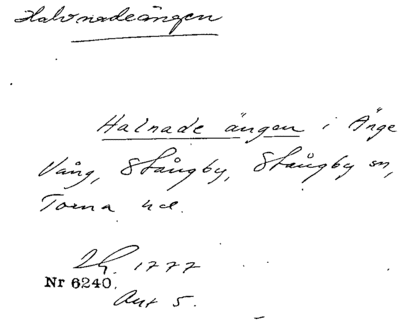 Halvnadeängen
Halnade ängen i Änge
Vång, Stångby, Stångby sn,
Torna hd.
1777
Nr 6240.
Akt 5.